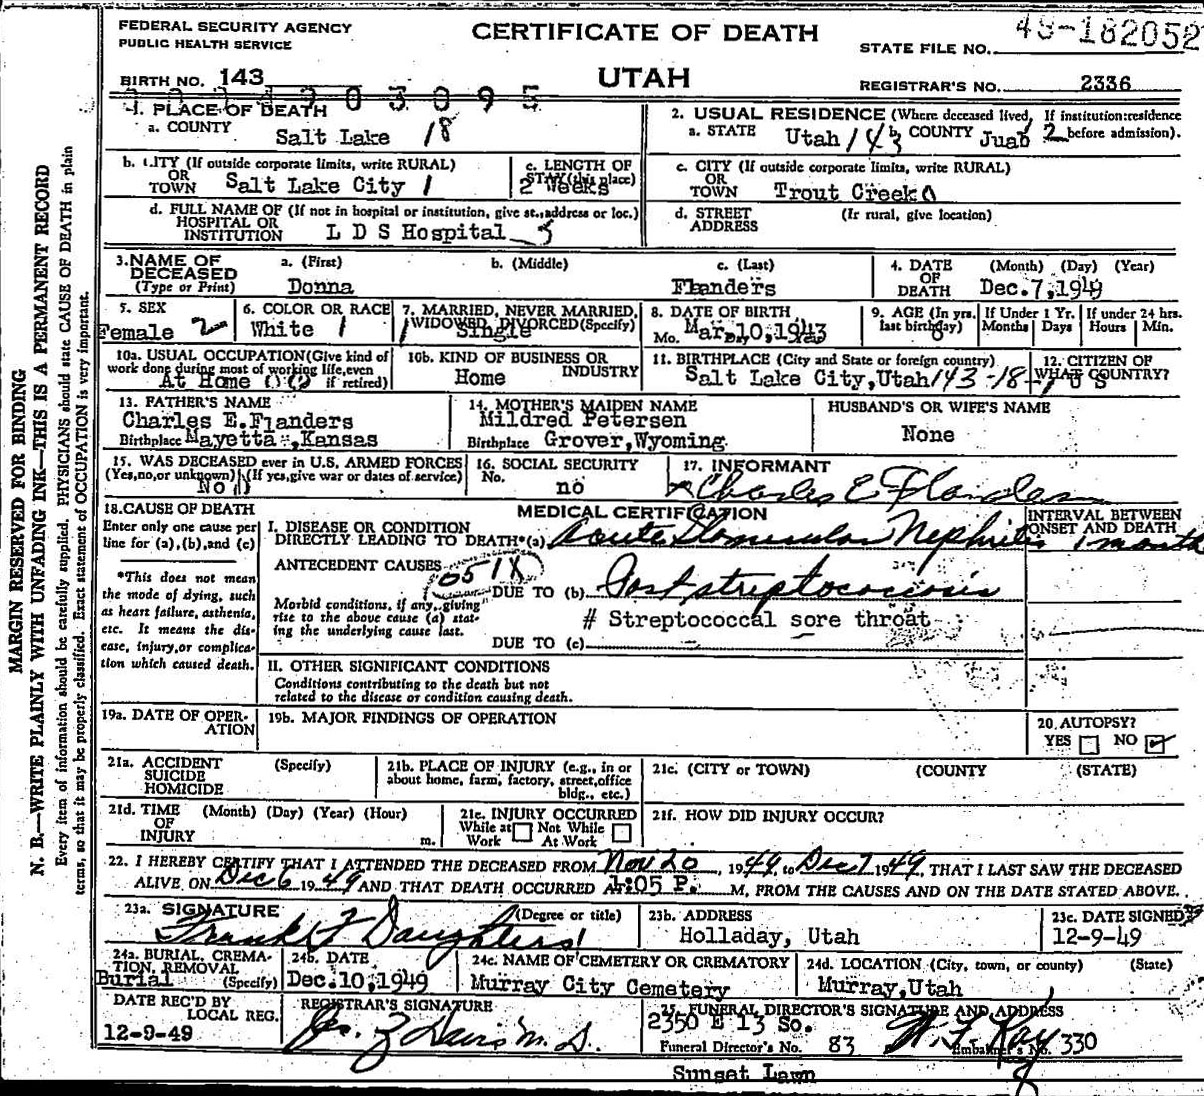 FEDERAL SECURITY AGENCY
PUBLIC HEALTH SERVICE
CERTIFICATE OF DEATH
STATE FILE NO. 49-182052
BIRTH NO. 143
UTAH
REGISTRAR'S NO. 2336
1. PLACE OF DEATH
a. COUNTY Salt Lake 18
2. USUAL RESIDENCE (Where deceased lived, If institution:residence before admission).
a. STATE Utah 143 b. COUNTY Juab 2
b. CITY (If outside corporate limits, write RURAL) OR TOWN Salt Lake City 1
c. LENGTH OF STAY (this place) 2 weeks
c. CITY (If outside corporate limits, write RURAL) OR TOWN Trout Creek 0
d. FULL NAME OF (If not in hospital or institution, give st., address or loc.) HOSPITAL OR INSTITUTION L D S Hospital 5
d. STREET ADDRESS (Ir rural, give location)
3. NAME OF DECEASED (Type or Print)
a. (First) Donna
b. (Middle)
c. (Last) Flanders
4. DATE OF DEATH (Month) (Day) (Year) Dec.7,1949
5. SEX Female 2
6. COLOR OR RACE White 1
7. MARRIED, NEVER MARRIED, WIDOWED, DIVORCED(Specify) Single
8. DATE OF BIRTH Mo. Day Year Mar.10,1943
9. AGE (In yrs. last birthday) 6
If Under 1 Yr. Months Days
If under 24 hrs. Hours Min.
10a. USUAL OCCUPATION(Give kind of work done during most of working life,even if retired) At Home
10b. KIND OF BUSINESS OR INDUSTRY Home
11. BIRTHPLACE (City and State or foreign country) Salt Lake City,Utah 143-18-1
12. CITIZEN OF WHAT COUNTRY? U S
13. FATHER'S NAME Charles E.Flanders
Birthplace Mayetta,Kansas
14. MOTHER'S MAIDEN NAME Mildred Petersen
Birthplace Grover,Wyoming
HUSBAND'S OR WIFE'S NAME None
15. WAS DECEASED ever in U.S. ARMED FORCES (Yes,no,or unknown) (If yes,give war or dates of service) No
16. SOCIAL SECURITY No. no
17. INFORMANT Charles E Flanders
18. CAUSE OF DEATH
Enter only one cause per line for (a),(b),and (c)
MEDICAL CERTIFICATION
INTERVAL BETWEEN ONSET AND DEATH
I. DISEASE OR CONDITION DIRECTLY LEADING TO DEATH*(a) Acute Glomerular Nephritis 1 month
ANTECEDENT CAUSES 051X
DUE TO (b) Post streptococcosis
Morbid conditions, if any, giving rise to the above cause (a) stating the underlying cause last.
# Streptococcal sore throat
DUE TO (c)
*This does not mean the mode of dying, such as heart failure, asthenia, etc. It means the disease, injury,or complication which caused death.
II. OTHER SIGNIFICANT CONDITIONS
Conditions contributing to the death but not related to the disease or condition causing death.
19a. DATE OF OPERATION
19b. MAJOR FINDINGS OF OPERATION
20. AUTOPSY? YES NO
21a. ACCIDENT SUICIDE HOMICIDE (Specify)
21b. PLACE OF INJURY (e.g., in or about home, farm, factory, street,office bldg., etc.)
21c. (CITY or TOWN) (COUNTY) (STATE)
21d. TIME OF INJURY (Month) (Day) (Year) (Hour) m.
21e. INJURY OCCURRED While at Work Not While At Work
21f. HOW DID INJURY OCCUR?
22. I HEREBY CERTIFY THAT I ATTENDED THE DECEASED FROM Nov 20, 1949, to Dec 7 1949, THAT I LAST SAW THE DECEASED
ALIVE ON Dec 6 1949 AND THAT DEATH OCCURRED At:05 P. M, FROM THE CAUSES AND ON THE DATE STATED ABOVE.
23a. SIGNATURE (Degree or title) Frank F Daughters
23b. ADDRESS Holladay, Utah
23c. DATE SIGNED 12-9-49
24a. BURIAL, CREMATION, REMOVAL (Specify) Burial
24b. DATE Dec.10,1949
24c. NAME OF CEMETERY OR CREMATORY Murray City Cemetery
24d. LOCATION (City, town, or county) (State) Murray,Utah
DATE REC'D BY LOCAL REG. 12-9-49
REGISTRAR'S SIGNATURE Geo. Z Davis M.D.
25. FUNERAL DIRECTOR'S SIGNATURE AND ADDRESS
2350 E 13 So.
Funeral Director's No. 83
Embalmer's No. 330
Sunset Lawn
MARGIN RESERVED FOR BINDING
N. B.—WRITE PLAINLY WITH UNFADING INK—THIS IS A PERMANENT RECORD
Every item of information should be carefully supplied. PHYSICIANS should state CAUSE OF DEATH in plain
terms, so that it may be properly classified. Exact statement of OCCUPATION is very important.